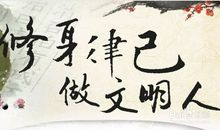 修身律己
做文明人